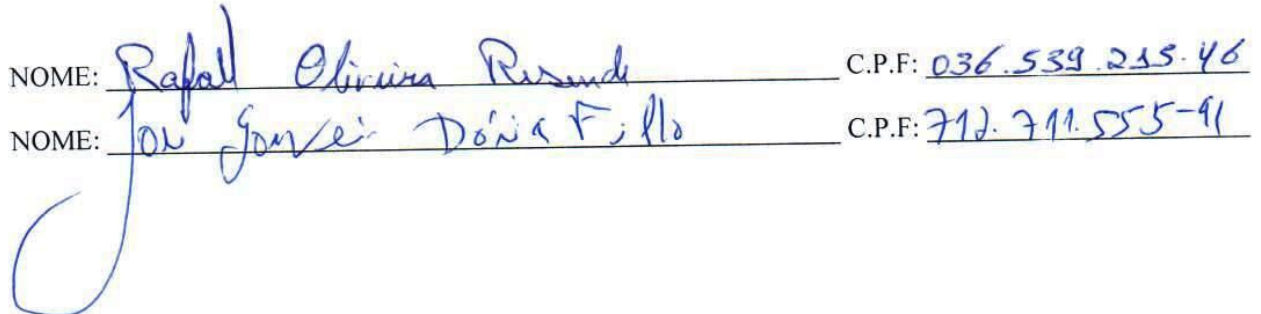 NOME: Rafael Oliveira Resende C.P.F: 036.539.215-46
NOME: José Dória Filho C.P.F: 712.711.555-91